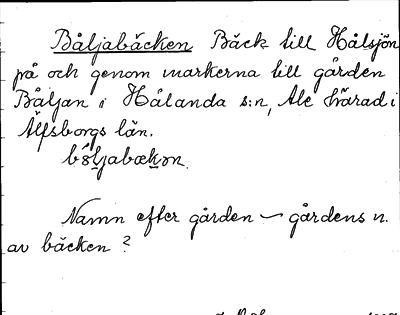 Båljabäcken Bäck till Hålsjön
på och genom markerna till gården
Båljan i Hålanda s:n, Ale härad i
Älfsborgs län.
Namn efter gården ~ gårdens n.
av bäcken?